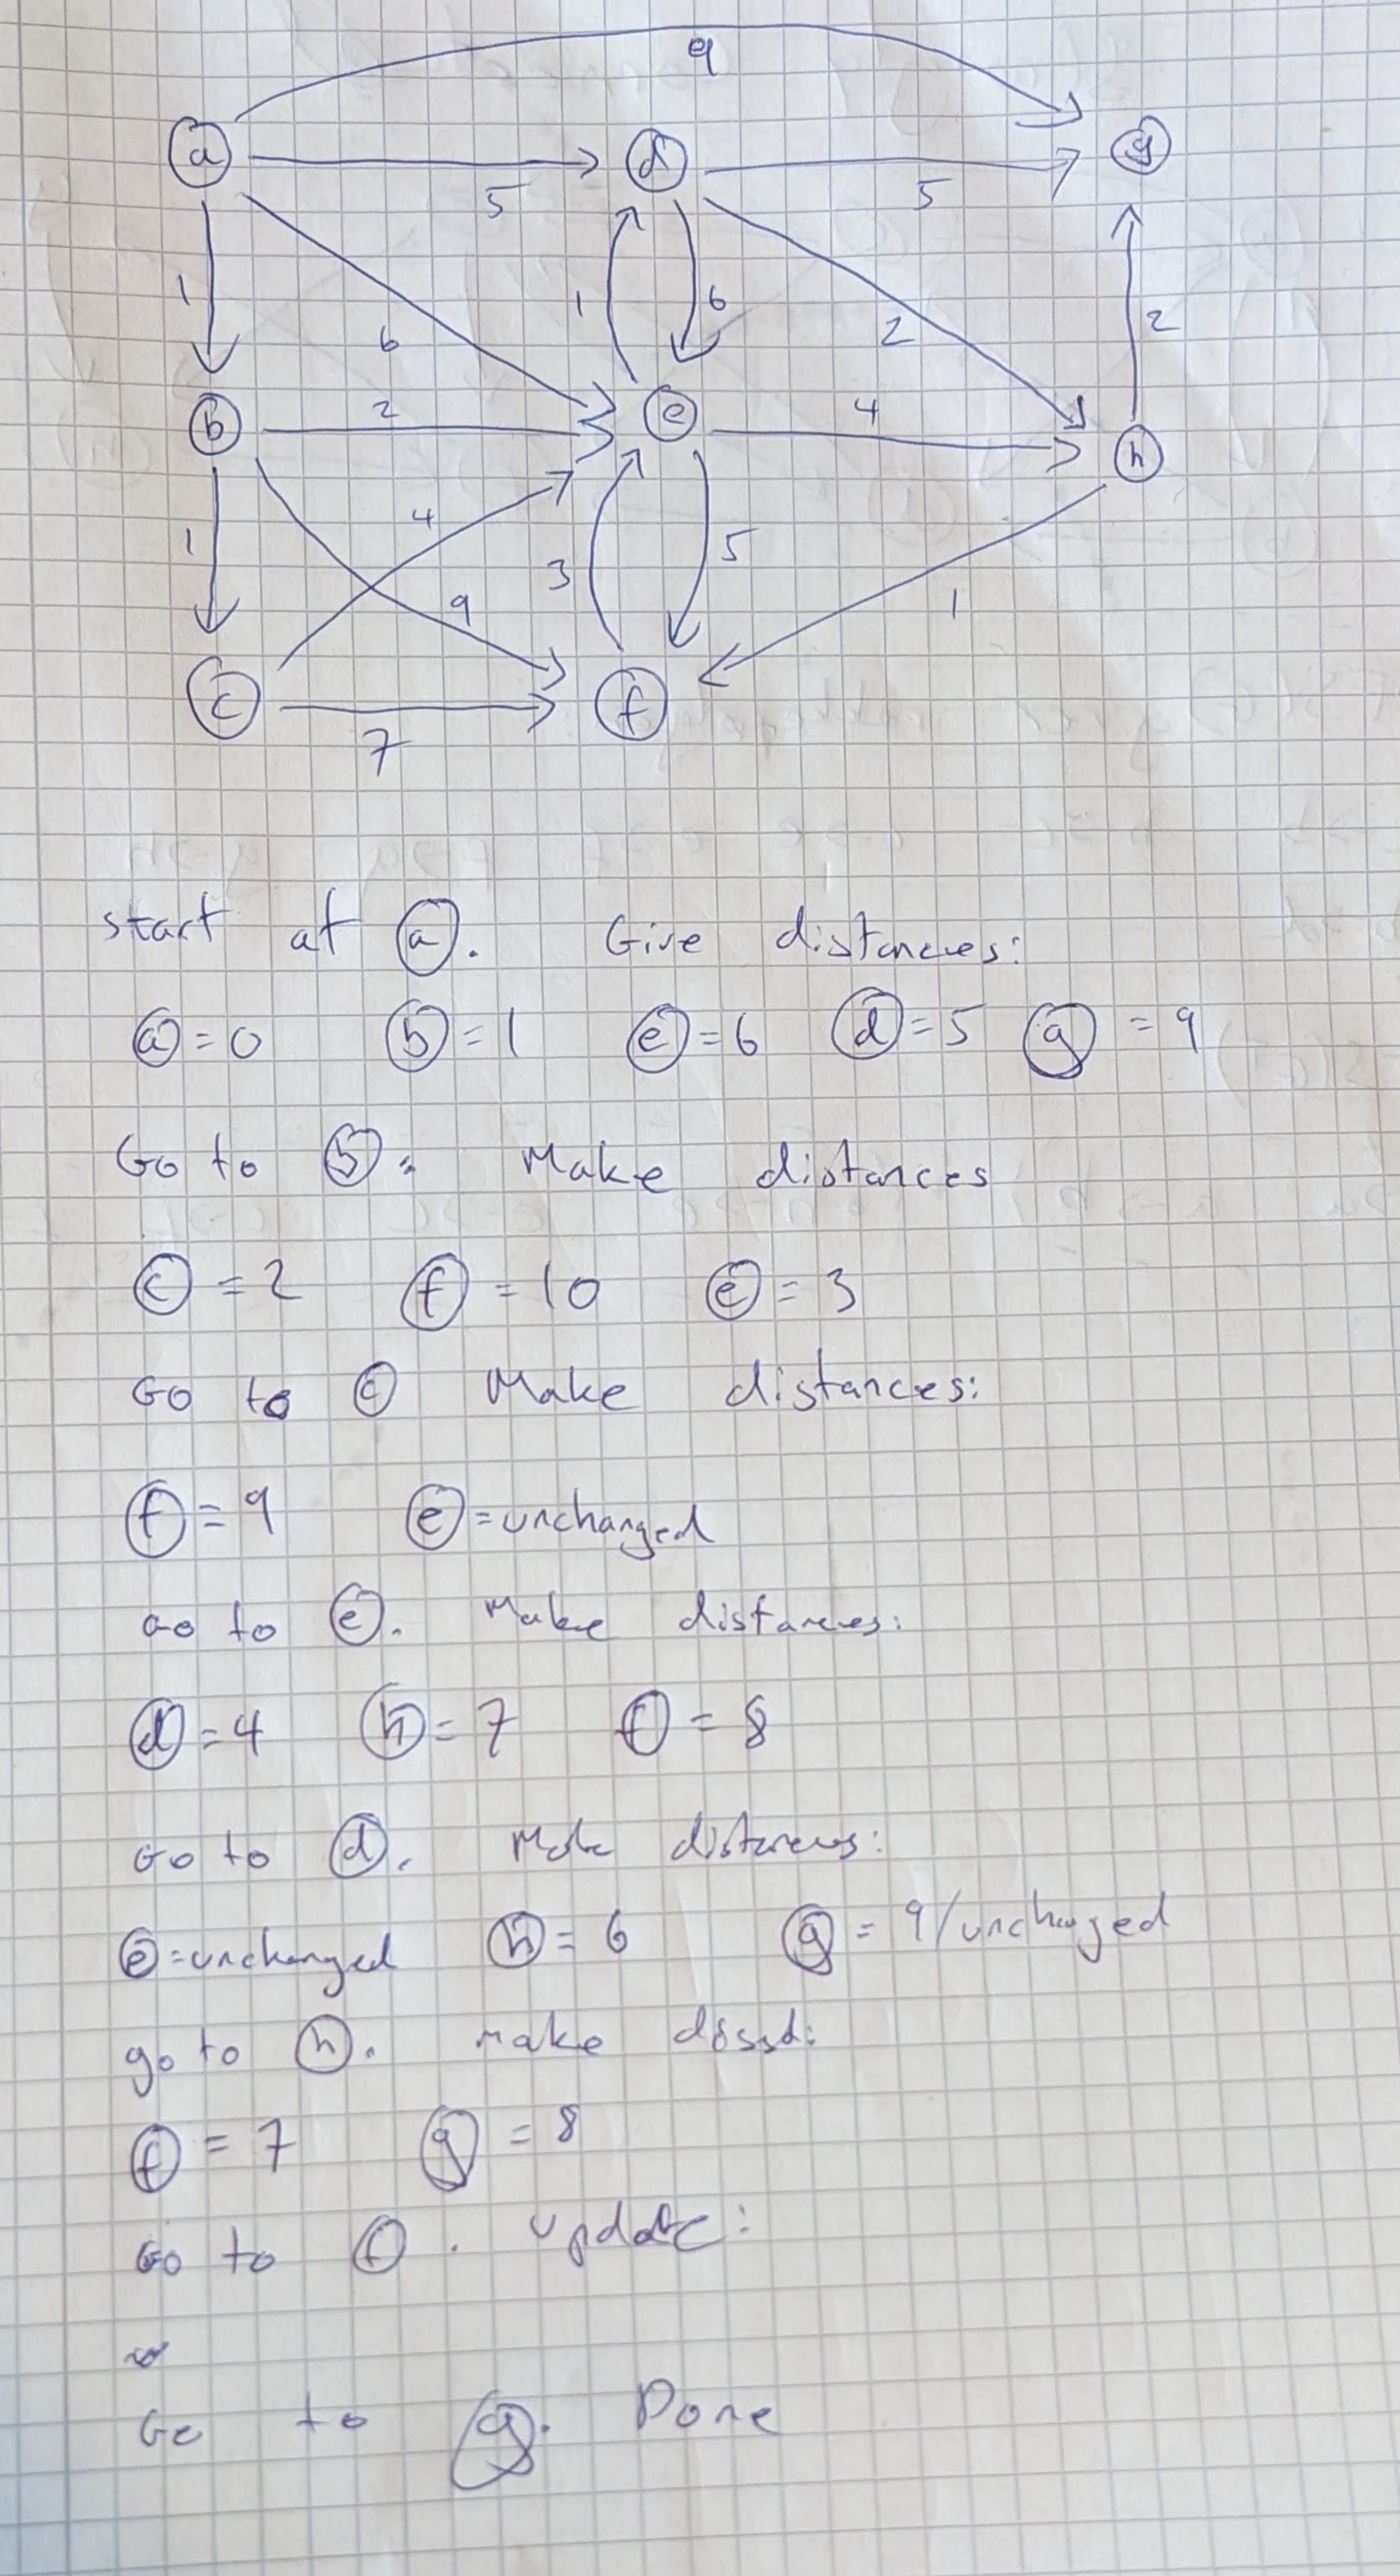 9
a d g
5 5
1 6 1 6 2 2
b 2 e 4 h
1 4 9 3 5 1
c f
7
start at a. Give distances:
a = 0 b = 1 e = 6 d = 5 g = 9
Go to b: Make distances
c = 2 f = 10 e = 3
Go to c Make distances:
f = 9 e = unchanged
Go to e. Make distances:
d = 4 h = 7 f = 8
Go to d. Make distances:
e = unchanged h = 6 g = 9/unchanged
go to h. make
f = 7 g = 8
Go to f. update:
Go to g. Done